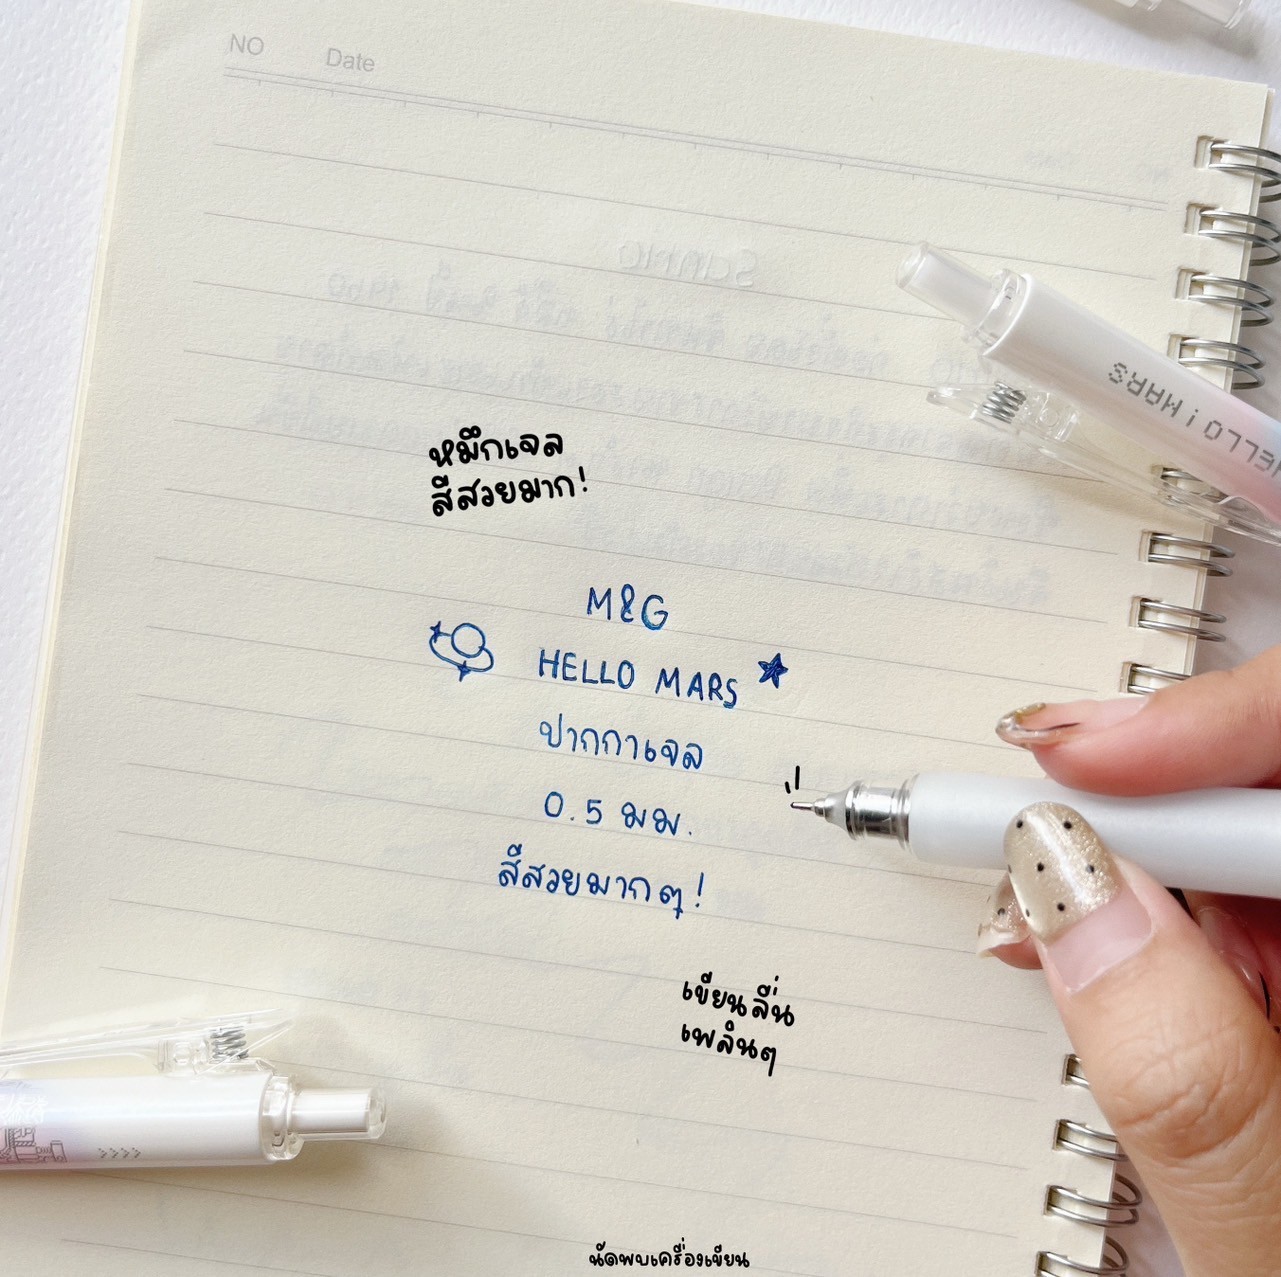 NO Date
หมึกเจล
สีสวยมาก!
HELLO! MARS
M&G
HELLO MARS
ปากกาเจล
0.5 มม.
สีสวยมากๆ!
เขียนลื่น
เพลินๆ
นัดพบเครื่องเขียน